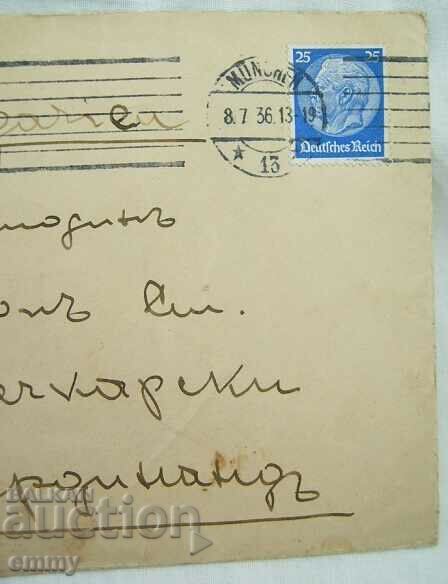 25 25
MÜNCHEN
8.7 36.13-19
* 13
Deutsches Reich
garien
подинъ
Ст.
чкарски
рдинандъ
BALKAN
auction
emmy